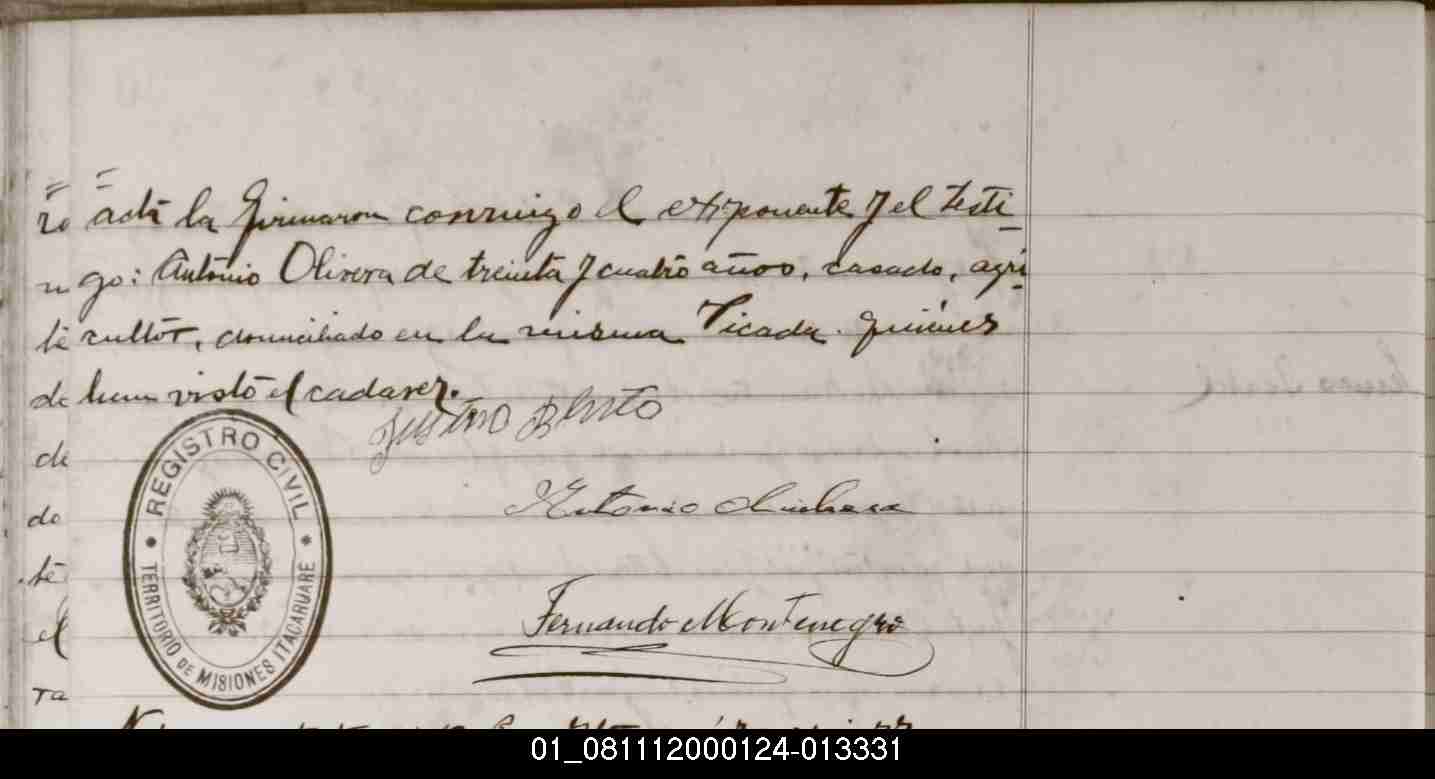 acta la firmaron conmigo el exponente y el testi
go: Antonio Olivera de treinta y cuatro años, casado, agri
cultor, domiciliado en la misma Picada. Quienes
han visto el cadaver.
de
de
do
te
el
ra
Antonio
Fernando Montenegro
REGISTRO CIVIL
TERRITORIO DE MISIONES ITACARUARE
01_081112000124-013331